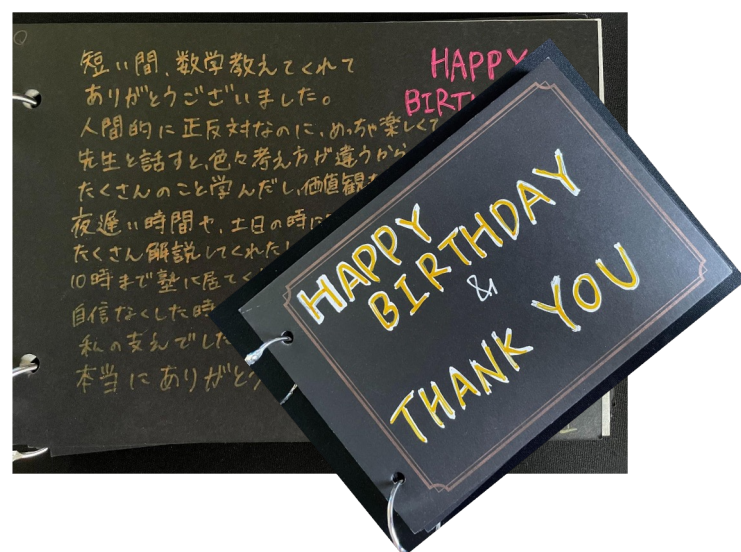 短い間、数学教えてくれて
ありがとうございました。
人間的に正反対なのに、めっちゃ楽しくて
先生と話すと、色々考え方が違うから
たくさんのこと学んだし、価値観
夜遅い時間や、土日の時に
たくさん解説してくれたし
10時まで塾に居てく
自信なくした時
私の支えでした
本当にありがとう
HAPPY
BIRT
HAPPY
BIRTHDAY
&
THANK YOU